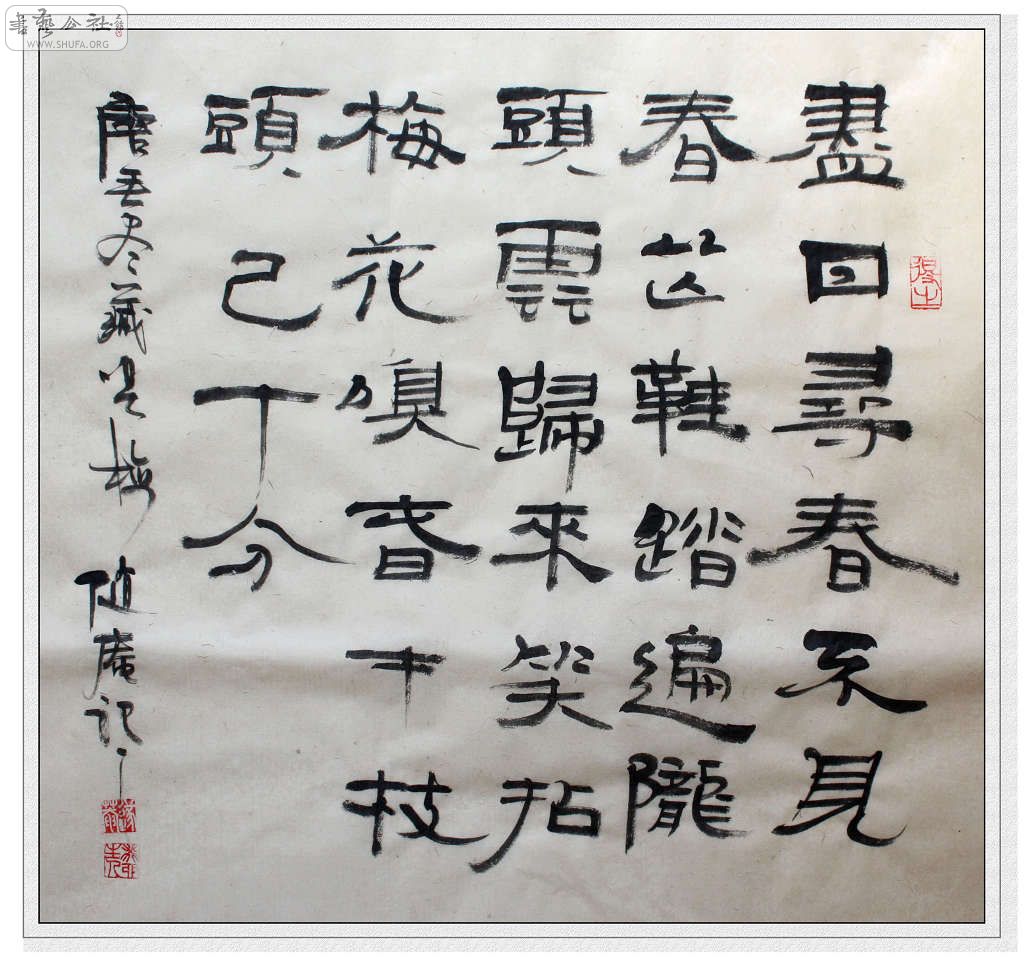 書藝公社
WWW.SHUFA.ORG
盡日尋春不見
春芒鞋踏遍隴
頭雲歸來笑拈
梅花嗅春才枝
頭已十分
唐无尽藏咏梅 随庵記
得之